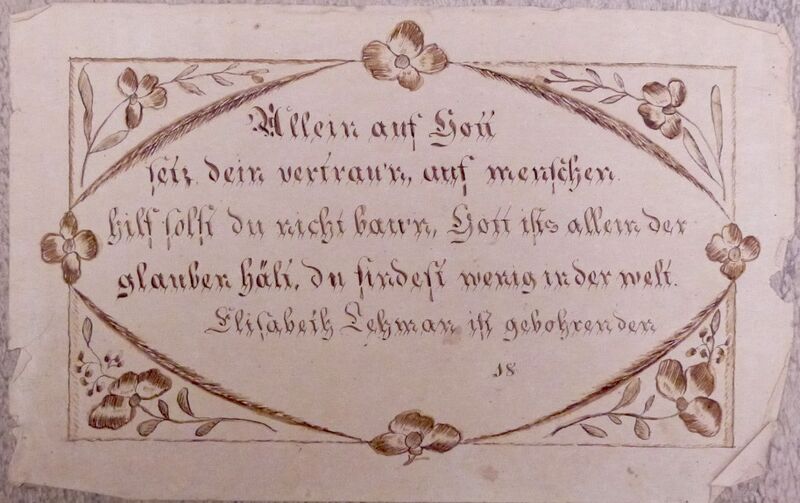 Allein auf Gott
setz dein vertrau'n, auf menschen
hilf solst du nicht bau'n, Gott ists allein der
glauben hält, du findest wenig in der welt.
Elisabeth Lehman ist gebohren den
18